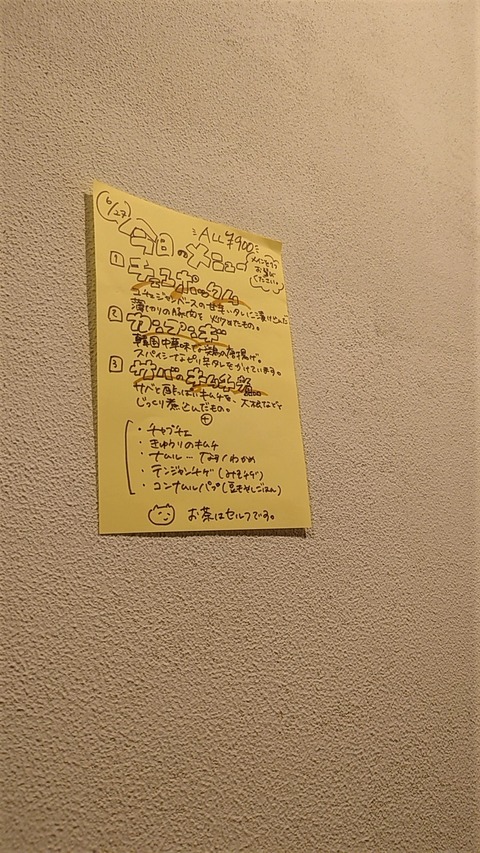 6/27
ALL ¥900
今日のメニュー
メインを1つ
お選び
ください。
1 チェユポックム
コチュジャンベースの甘辛いタレに漬け込んだ
薄切りの豚肉を炒めたもの。
2 カンプンギ
韓国中華味な鶏の唐揚げ。
スパイシーなピリ辛タレをかけています。
3 サバのキムチ煮
サバと酸っぱいキムチを、大根などと
じっくり煮込んだもの。
+
・チャプチェ
・きゅうりのキムチ
・ナムル…なす/わかめ
・テンジャンチゲ(みそチゲ)
・コンナムルパプ(豆もやしごはん)
お茶はセルフです。